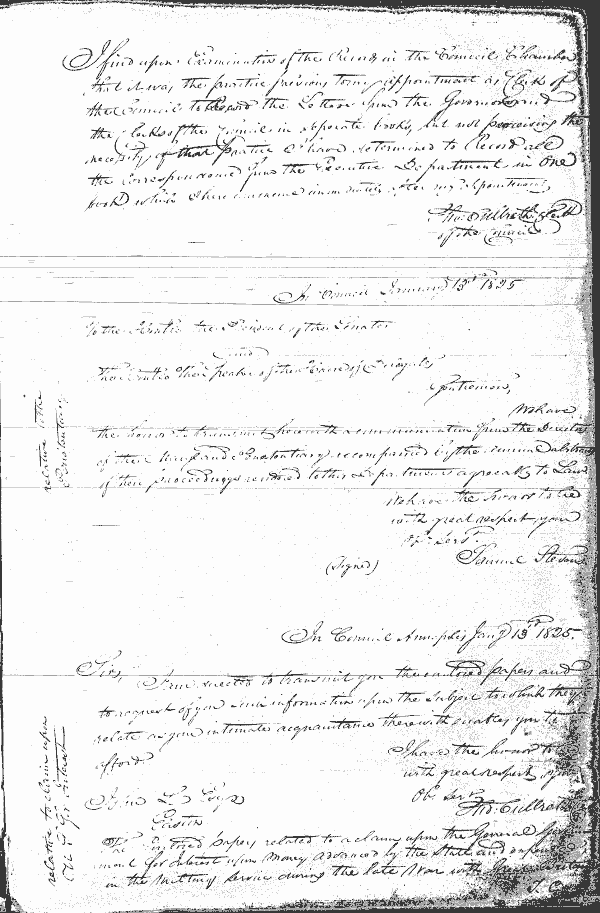 I find upon Examination of the Records in the Council Chamber
that it was the practice previous to my appointment as Clerk of
the Council to Record the Letters from the Governors and
the Clerks of the Council in separate books, but not perceiving the
necessity of that practice I have determined to Record all
the correspondence from the Executive Department in one
book which I here commence immediately after my appointment,
Tho. Culbreth Clerk
of the Council
In Council January 13th 1825
To the Honble the President of the Senate
and
The Honble the Speaker of the House of Delegates
Gentlemen,
We have
the honor to transmit herewith a communication from the Directors
of the Maryland Penitentiary accompanied by the annual abstract
of their proceedings rendered to this Department agreeably to Law
We have the honor to be
with great respect your
Obt. Servt.
(Signed) Samuel Stevens
relative to the
Penitentiary
In Council Annapolis Jany 13th 1825.
Sir,
I am directed to transmit you the enclosed papers and
to request of you such information upon the subject to which they
relate as your intimate acquaintance therewith enables you to
afford
I have the honor to be
with great respect your
Ob. Servt.
Tho. Culbreth
Esqr
Easton
The enclosed papers related to a claim upon the General Govern
ment for Interest upon money advanced by the State and
in the Military service during the late War with Great
relative to claim upon